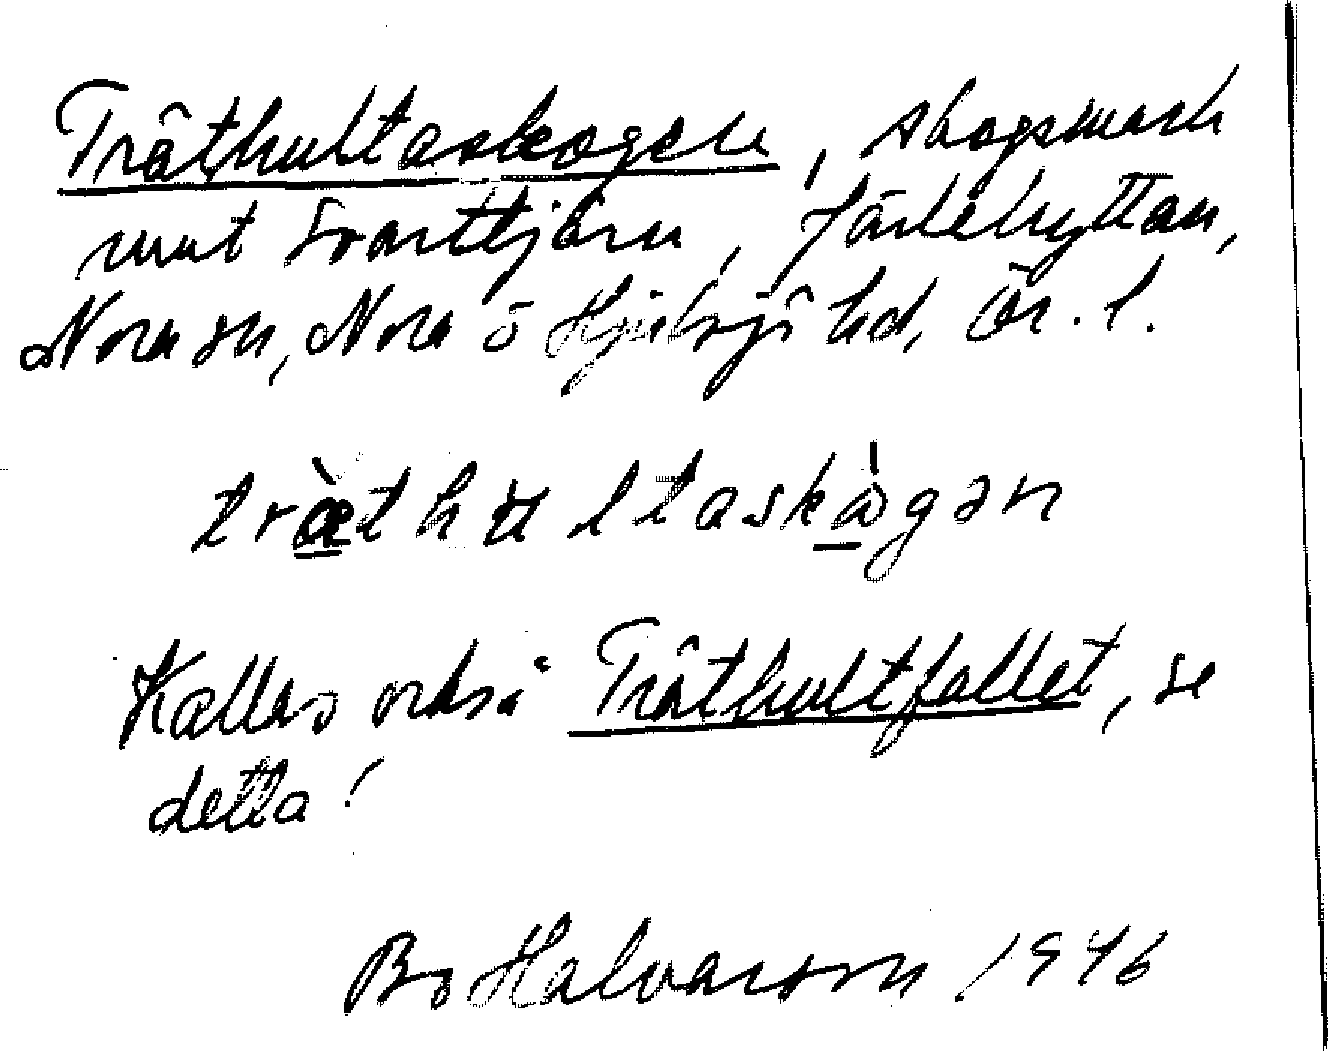 Träthultaskogen, skogsmark
mot Svarttjärn, Järlehyttan,
Nora sn, Nora o Hjulsjö hd, Ör. l.
träthultaskågən
Kallas också Träthultfallet, se
detta!
Bo Halvarson 1946